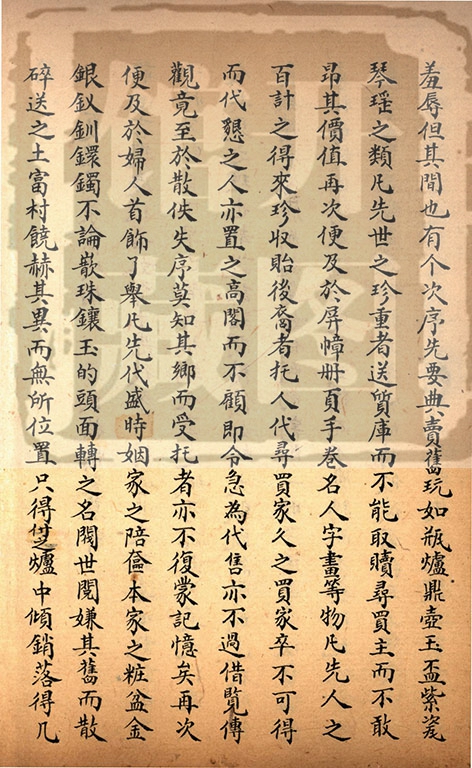 羞辱但其間也有个次序先要典賣舊玩如瓶爐鼎壺玉盃紫瓷
琴瑶之類凡先世之珍重者送質庫而不能取贖尋買主而不敢
昂其價值再次便及於屏幛冊頁手卷名人字畫等物凡先人之
百計之得來珍収貽後裔者托人代尋買家久之買家卒不可得
而代懇之人亦置之高閣而不顧即令急為代售亦不過借覽傳
觀竟至於散佚失序莫知其鄉而受托者亦不復蒙記憶矣再次
便及於婦人首飾了舉凡先代盛時姻家之陪奩本家之粧盆金
銀釵釧鐶鐲不論嵌珠鑲玉的頭面轉之名閥世閱嫌其舊而散
碎送之土富村饒赫其異而無所位置只得付之爐中傾銷落得几